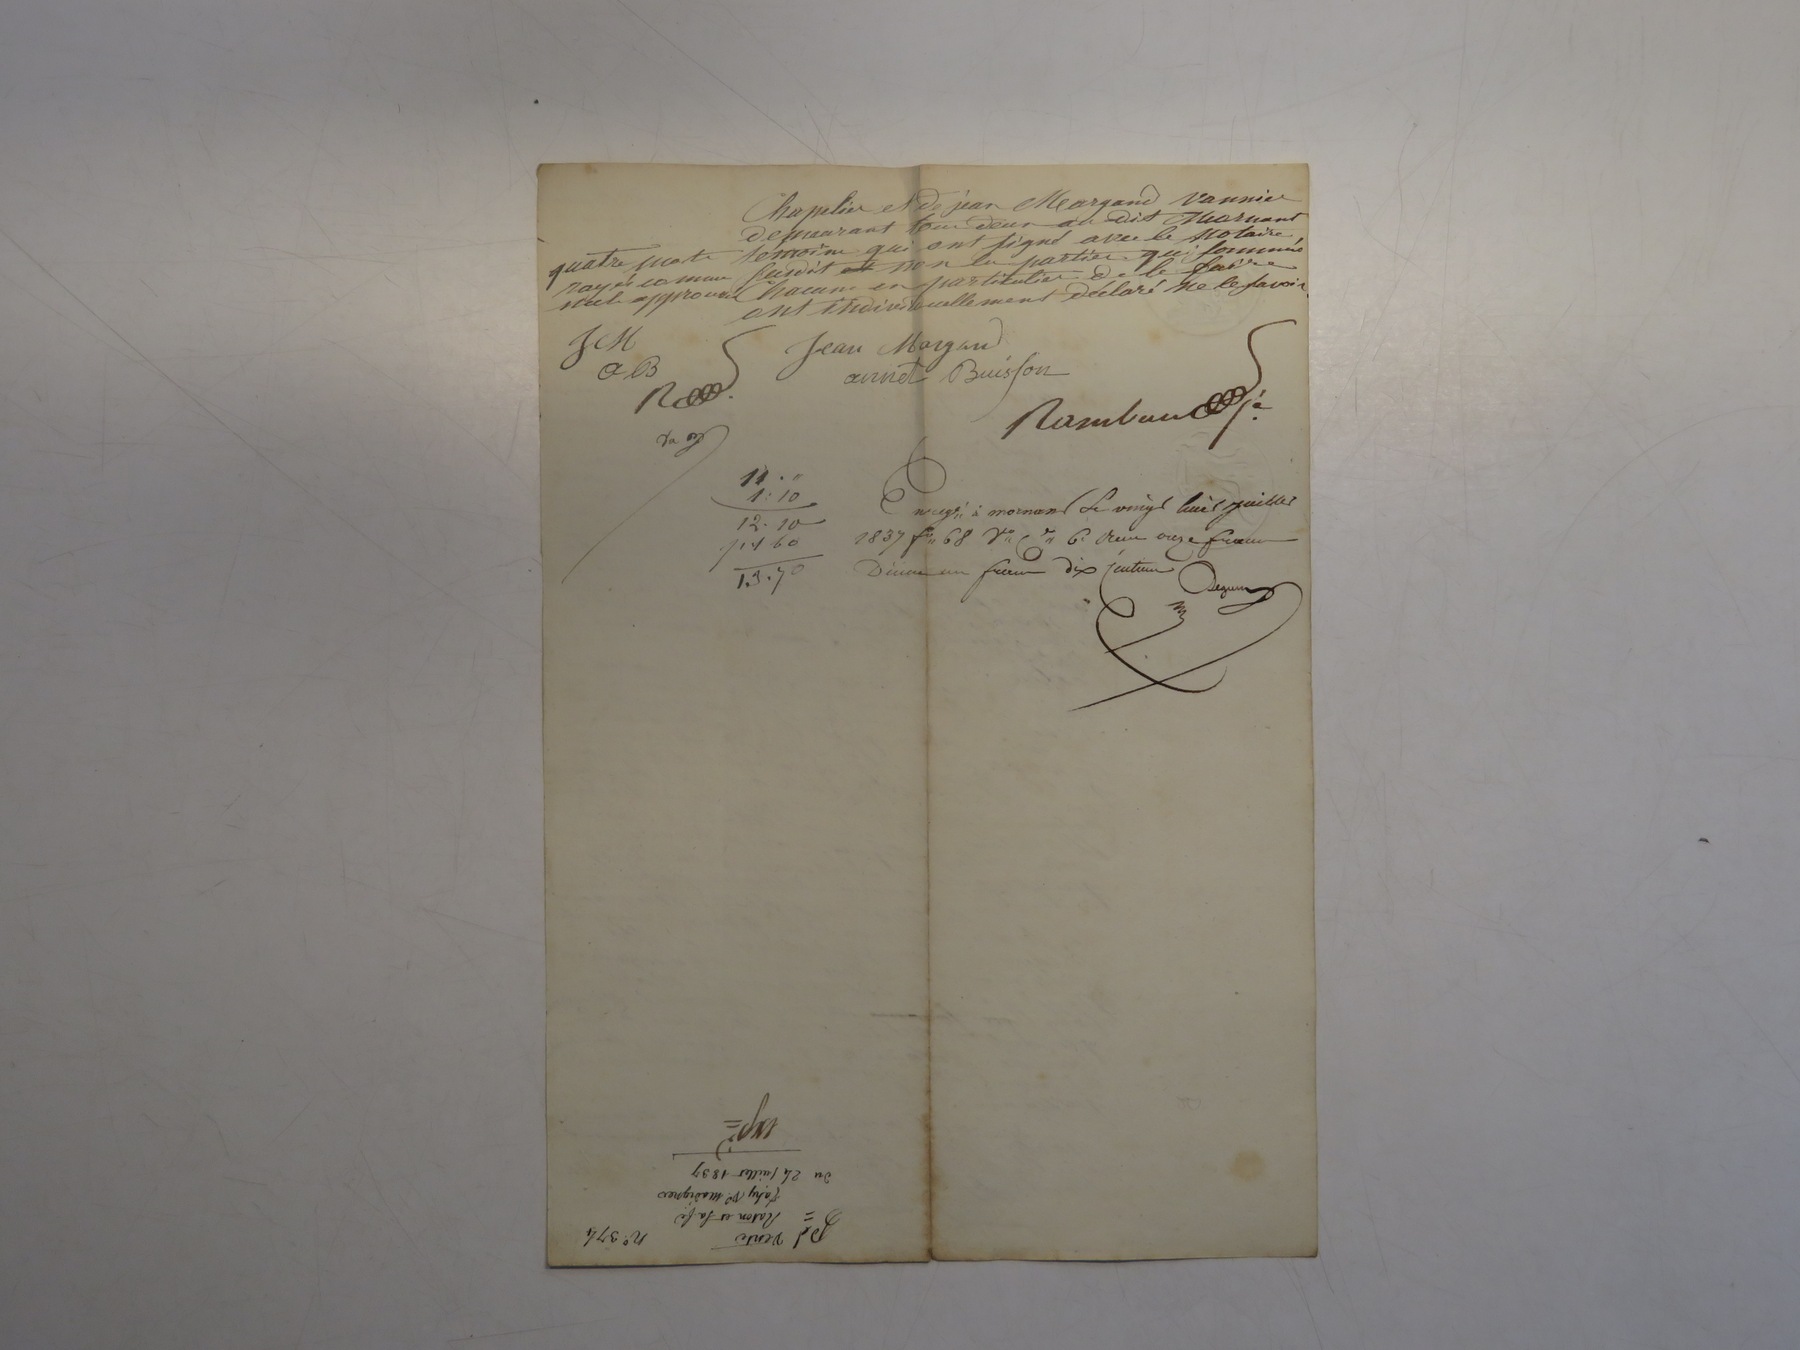 Chapelier et de jean Margand vannier
demeurant tous deux au dit Mornant
témoins qui ont signé avec le Notaire
susdit et non les parties qui sommées
Chacune en particulier de le faire
ont individuellement déclaré ne le savoir.
quatre mots
rayés comme
nuls approuvés
JM
aB
R
Jean Margand
annet Buisson
Rambaud
11 . "
1. 10
12. 10
1. 60
13. 70
Enregis à mornant le vingt huit juillet
1837 fo 68 Vo Ce 6. reçu onze francs
Décime un franc dix centimes
No 374
Vente
Raton et sa fe
à Vd
du 24 Juillet 1837
expon